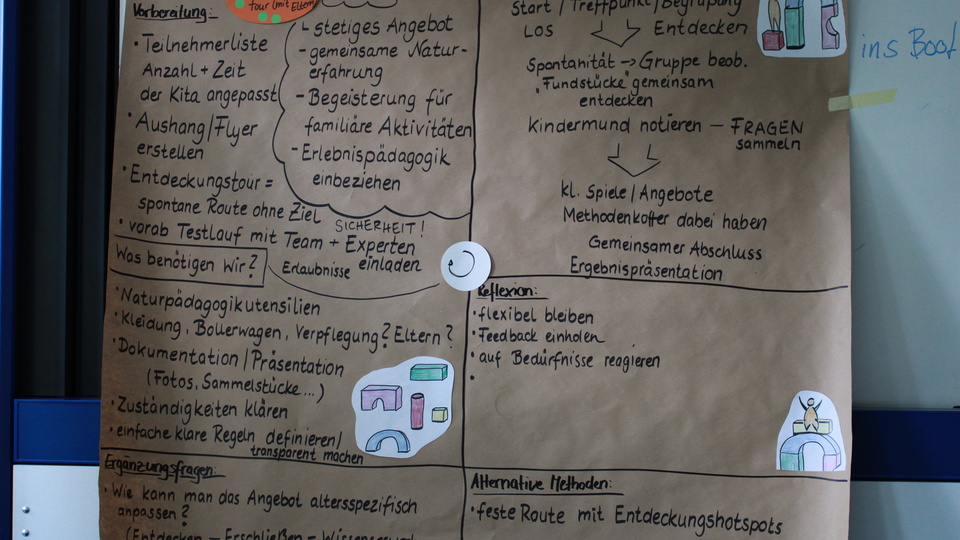 Vorbereitung:
tour (mit Eltern)
• Teilnehmerliste
Anzahl + Zeit
der Kita angepasst
• Aushang/Flyer
erstellen
• Entdeckungstour =
spontane Route ohne Ziel
• vorab Testlauf mit Team + Experten
einladen
SICHERHEIT!
Erlaubnisse
- stetiges Angebot
- gemeinsame Natur-
erfahrung
- Begeisterung für
familiäre Aktivitäten
- Erlebnispädagogik
einbeziehen
Was benötigen Wir?
• Naturpädagogikutensilien
• Kleidung, Bollerwagen, Verpflegung? Eltern?
• Dokumentation/Präsentation
(Fotos, Sammelstücke...)
• Zuständigkeiten klären
• einfache klare Regeln definieren/
transparent machen
Ergänzungsfragen:
• Wie kann man das Angebot altersspezifisch
anpassen?
(Entdecken – Erschließen =
Start / Treffpunkt / Begrüßung
Los Entdecken
Spontanität → Gruppe beob.
"Fundstücke" gemeinsam
entdecken
Kindermund notieren — FRAGEN
sammeln
kl. Spiele / Angebote
Methodenkoffer dabei haben
Gemeinsamer Abschluss
Ergebnispräsentation
Reflexion:
• flexibel bleiben
• Feedback einholen
• auf Bedürfnisse reagieren
•
Alternative Methoden:
• feste Route mit Entdeckungshotspots
ins Boot